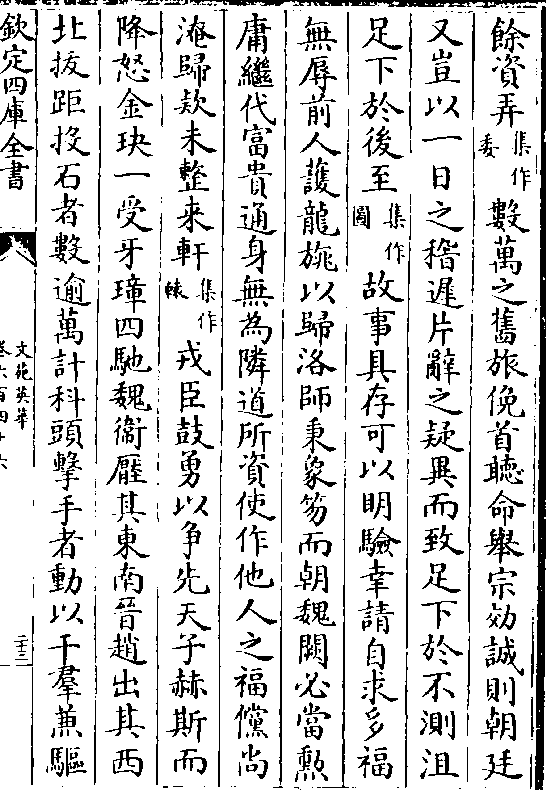 餘資弄集作委數萬之舊旅俛首聽命舉宗効誠則朝廷
又豈以一日之稽遲片辭之疑異而致足下於不測沮
足下於後至集作圖故事具存可以明驗幸請自求多福
無辱前人護龍旐以歸洛師秉象笏而朝魏闕必當勲
庸繼代富貴通身無為隣道所資使作他人之福儻尚
淹歸欵未整來軒集作轅戎臣鼓勇以争先天子赫斯而
降怒金玦一受牙璋四馳魏衞壓其東南晉趙出其西
北拔距投石者數逾萬計科頭擊手者動以千羣兼驅
欽定四庫全書
文苑英華
卷六百四十六
二十三